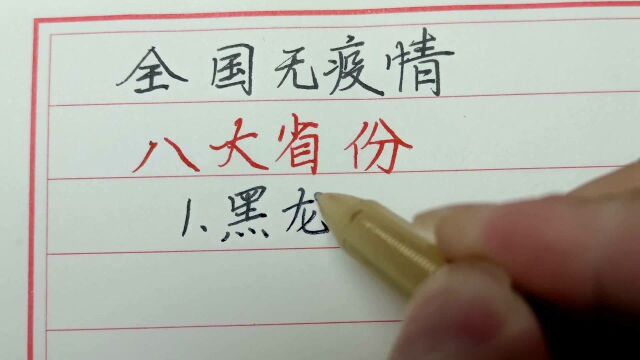 全国无疫情
八大省份
1.黑龙